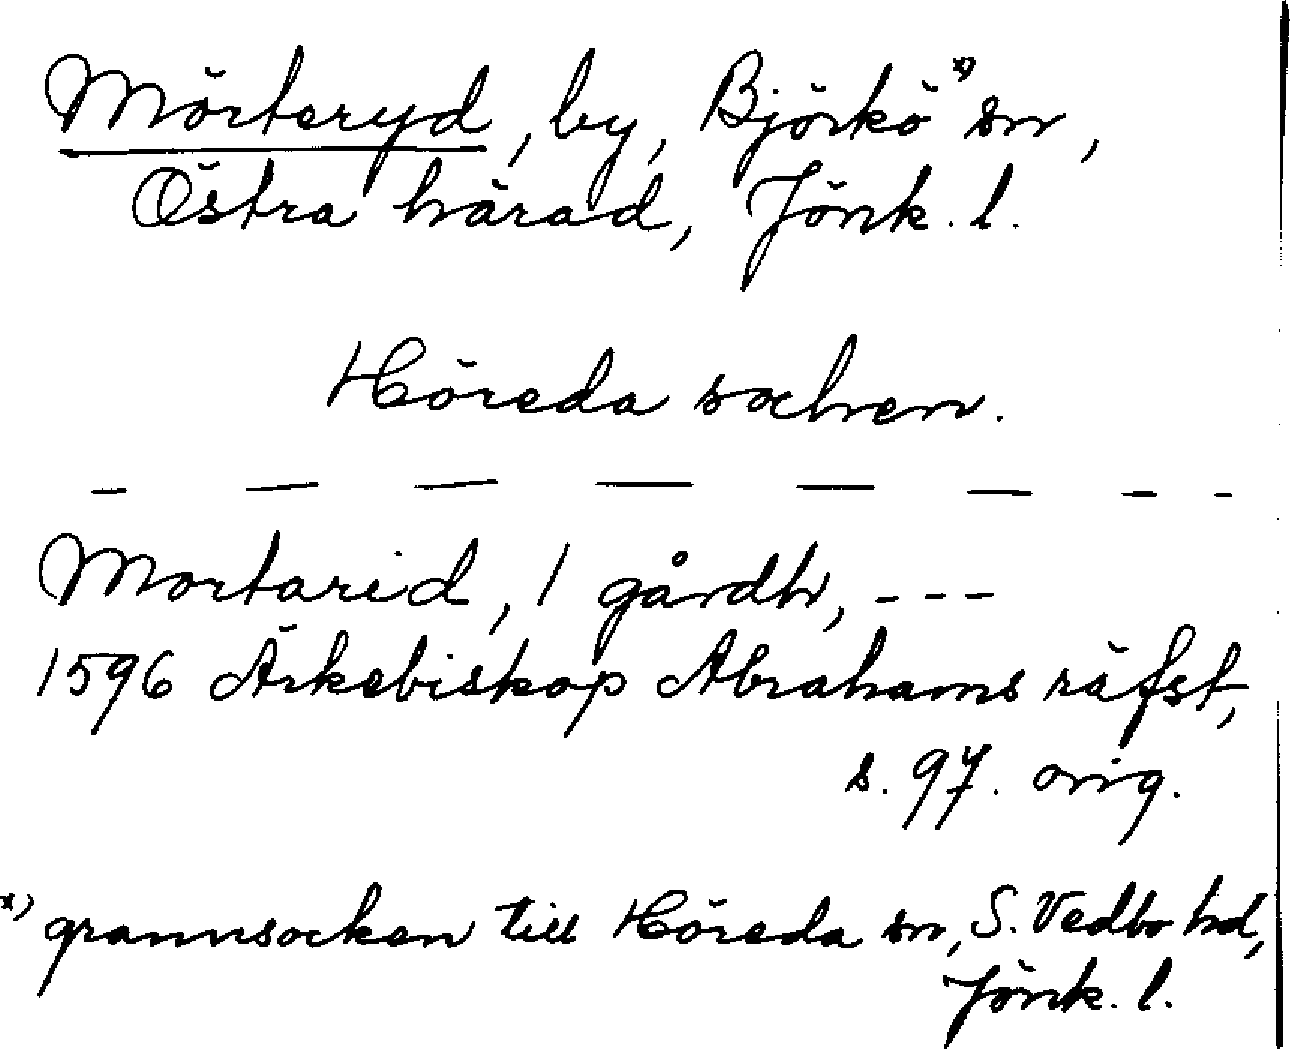 Mörteryd, by, Björkö x) sn,
Östra härad, Jönk. l.
Höreda sochen.
— — — — — — — —
Mortarid, 1 gårdh, ---
1596 Ärkebiskop Abrahams räfst,
s. 97. orig.
x) grannsocken till Höreda sn, S. Vedbo hd,
Jönk. l.